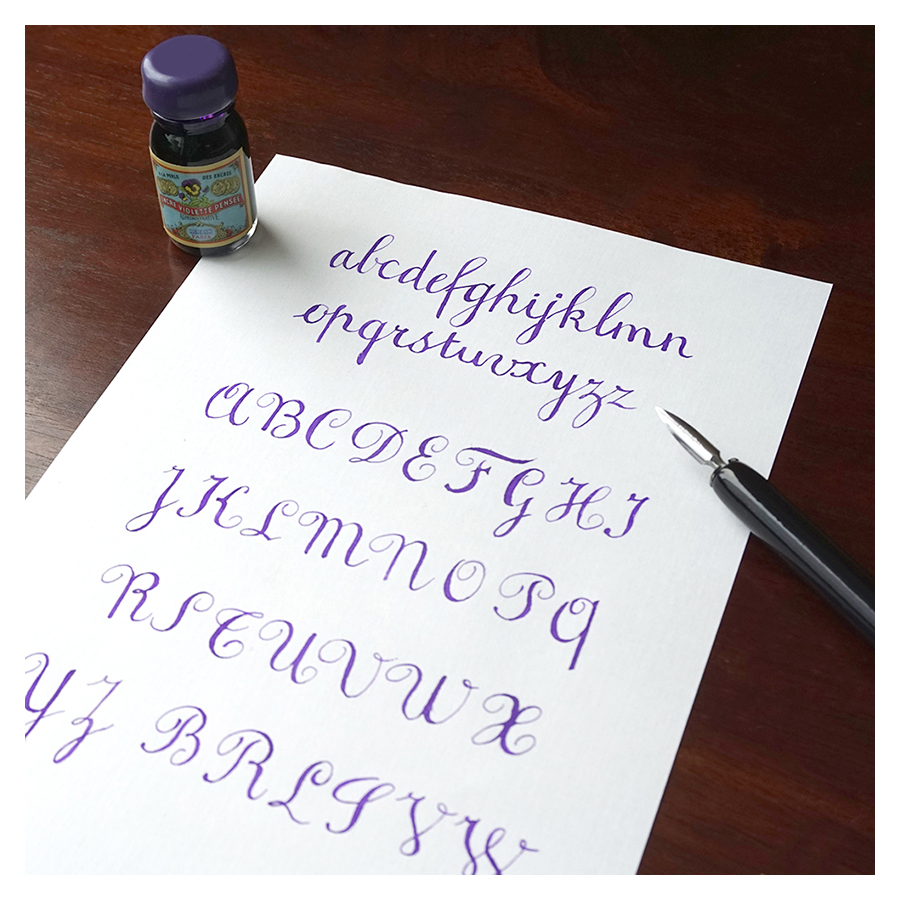 A LA PERLE DES ENCRES
ENCRE VIOLETTE PENSÉE
abcdefghijklmn
opqrstuvxyzz
ABCDEFGHI
JKLMNOPQ
RSTUVWX
YZ BRLSVW